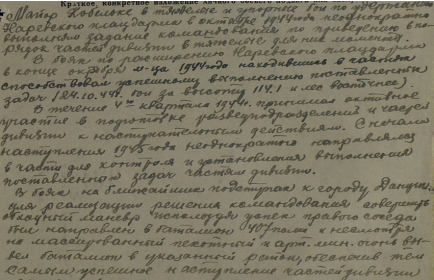 Краткое, конкретное
Майор Кобелюк в тяжелые и упорные бои по удержанию
Наревского плацдарма в октябре 1944 года неоднократно
выполнял задание командования по приведению в по-
рядок частей дивизии в тяжелые для них моменты.
В боях по расширению Наревского плацдарма
в конце октября м-ца 1944 года находившись в частях
способствовал успешному выполнению поставленных
задач (24.10.44г. бой за высоту 114.1 и лес восточнее).
В течение 4го квартала 1944г. принимал активное
участие в подготовке разведподразделений и частей
дивизии к наступательным действиям. С начала
наступления 1945 года неоднократно направлялся
в части для контроля и установления выполнения
поставленных задач частям дивизии.
В боях на ближайших подступах к городу Данциг,
для реализации решения командования совершить
обходный маневр используя успех правого соседа
был направлен в батальон полка и несмотря
на массированный пехотный и арт. мин. огонь вы-
вел батальон в указанный район, обеспечив тем
самым успешное наступление частей дивизии